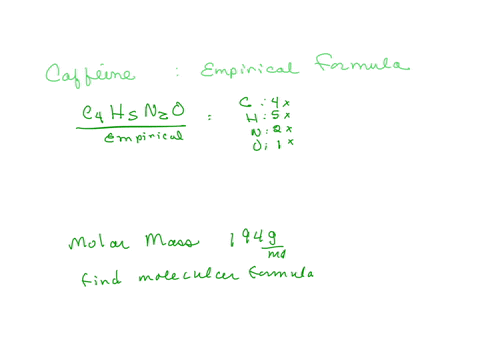 Caffeine : Empirical Formula
C4H5N2O : C : 4x
Empirical H : 5x
N : 2x
O : 1x
Molar Mass 194 g
mol
find molecular formula